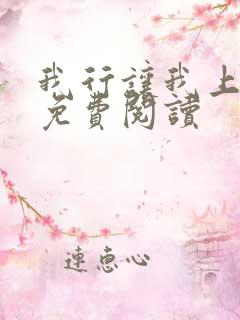 我行讓我上
免費閱讀
連惠心